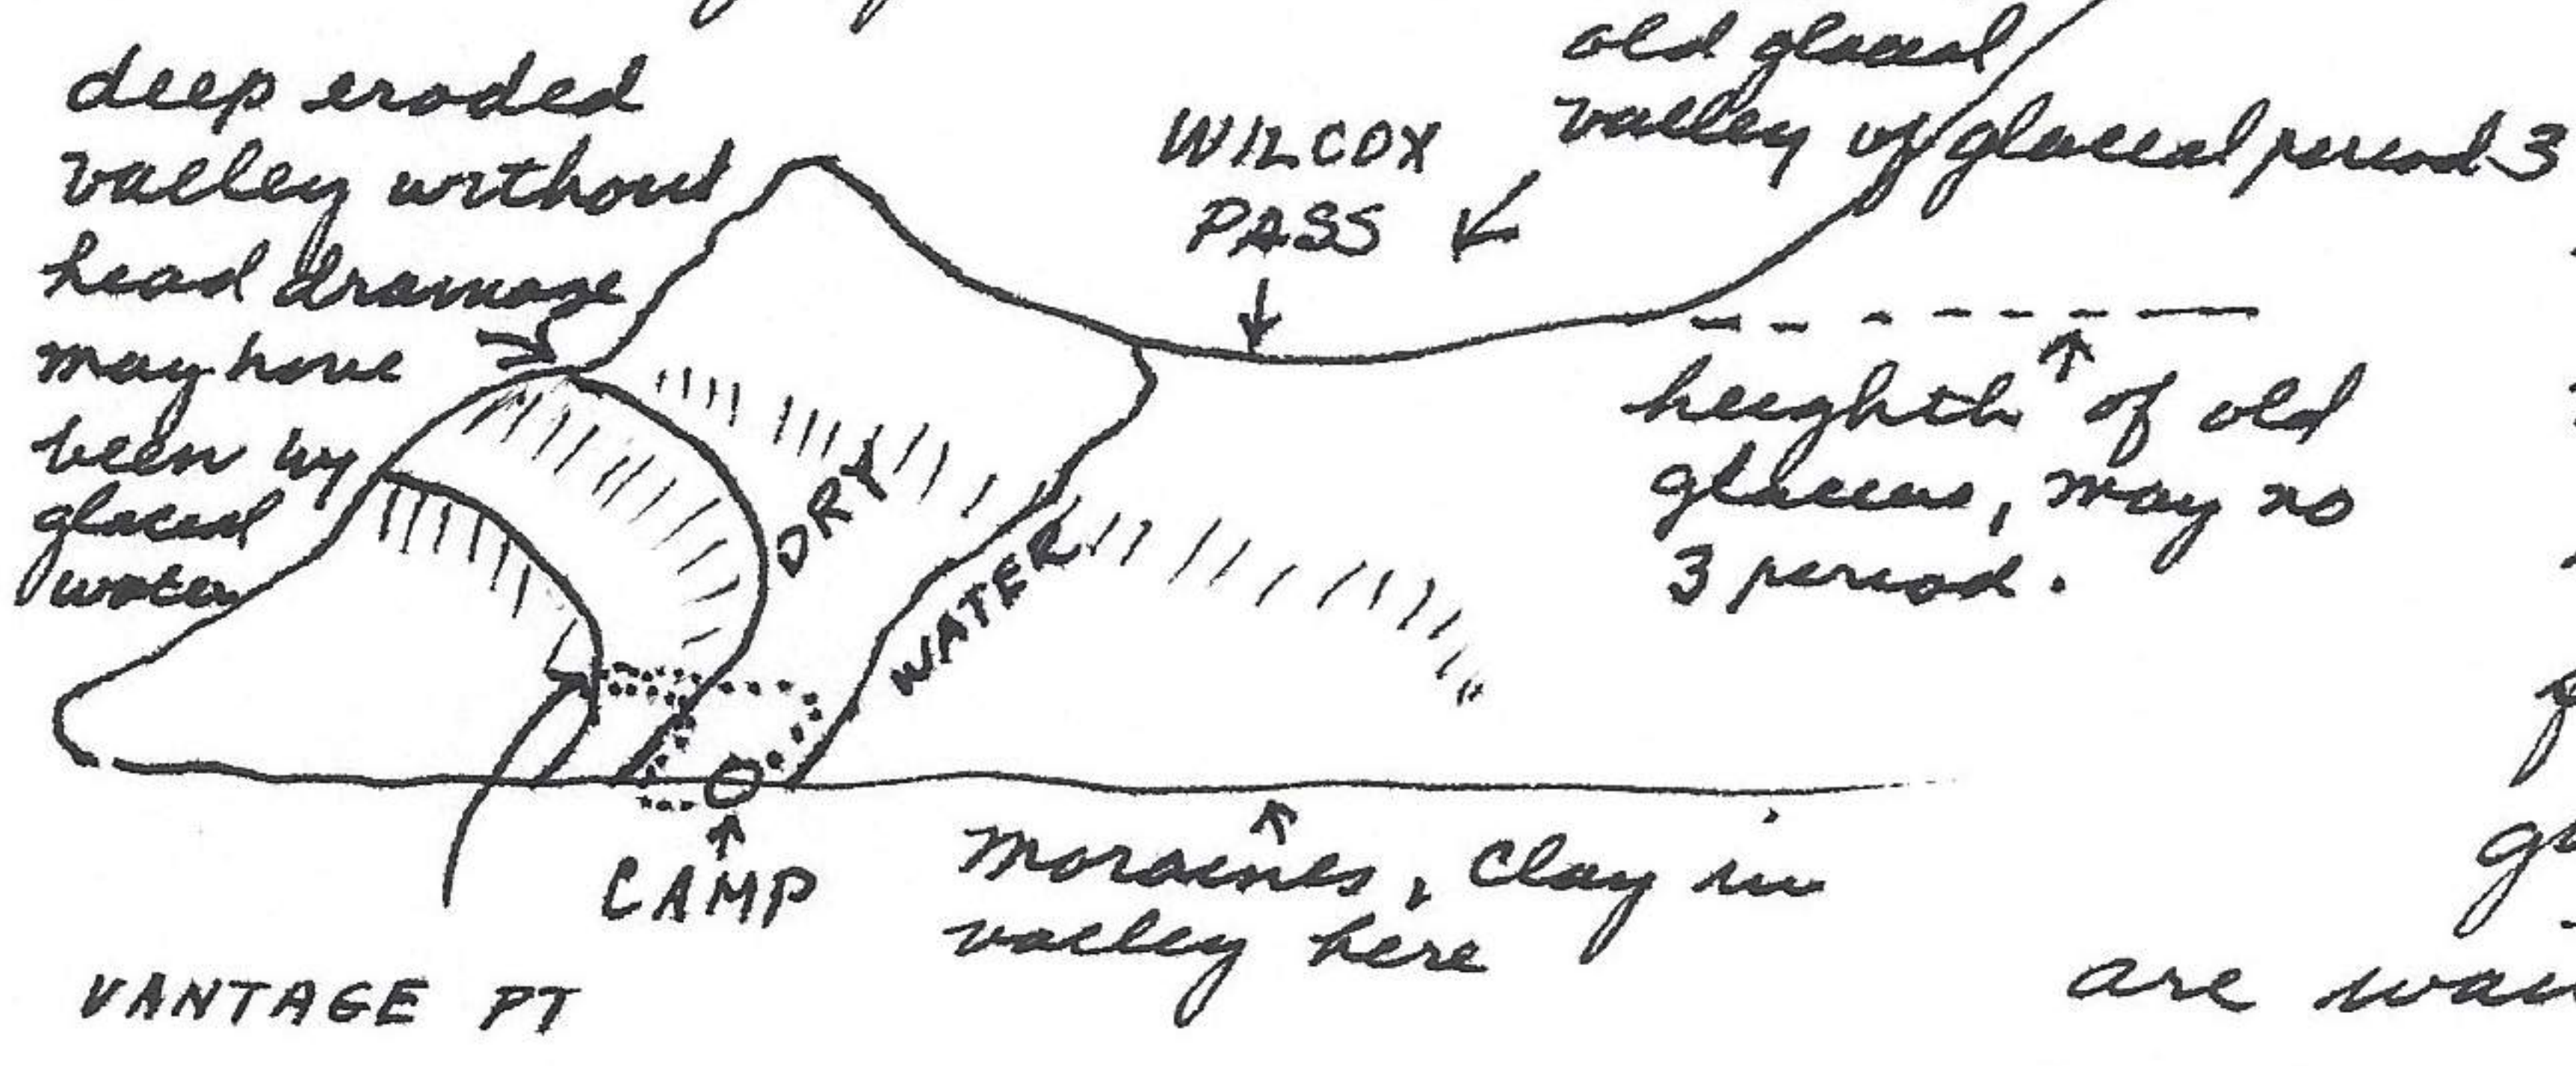 deep eroded
valley without
head dramage
may have
been by
glacial
water
WILCOX
PASS
old glacial
valley of glacial period 3
heighth of old
glaciers, may no
3 period.
DRY
WATER
CAMP
moraines, clay in
valley here
VANTAGE PT
are